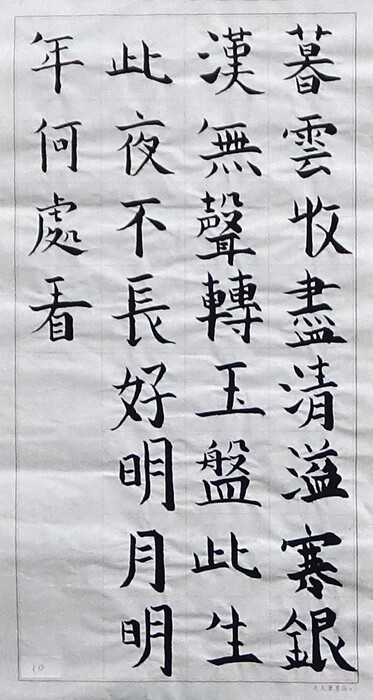 暮雲收盡清溢寒銀
漢無聲轉玉盤此生
此夜不長好明月明
年何處看
10